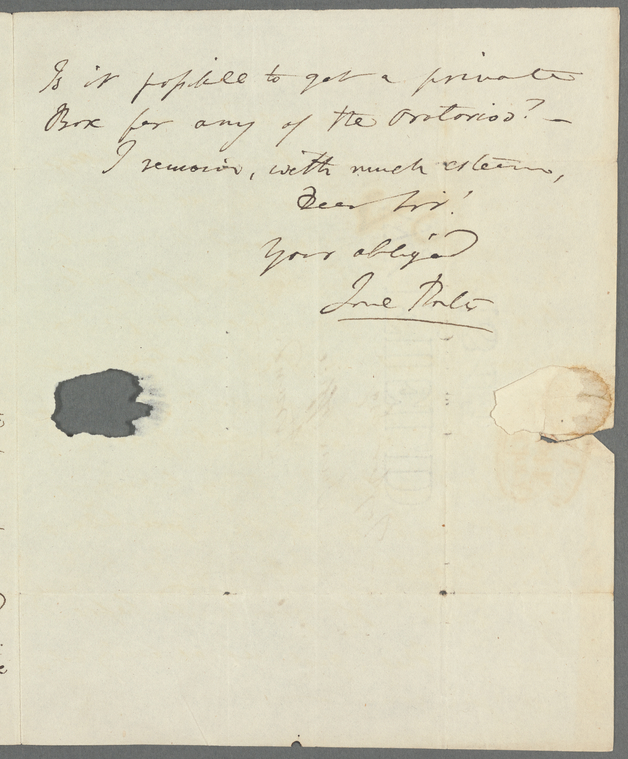 Is it possible to get a private
Box for any of the Oratorios? —
I remain, with much esteem,
Dear Sir!
Your obliged
Jane Porter